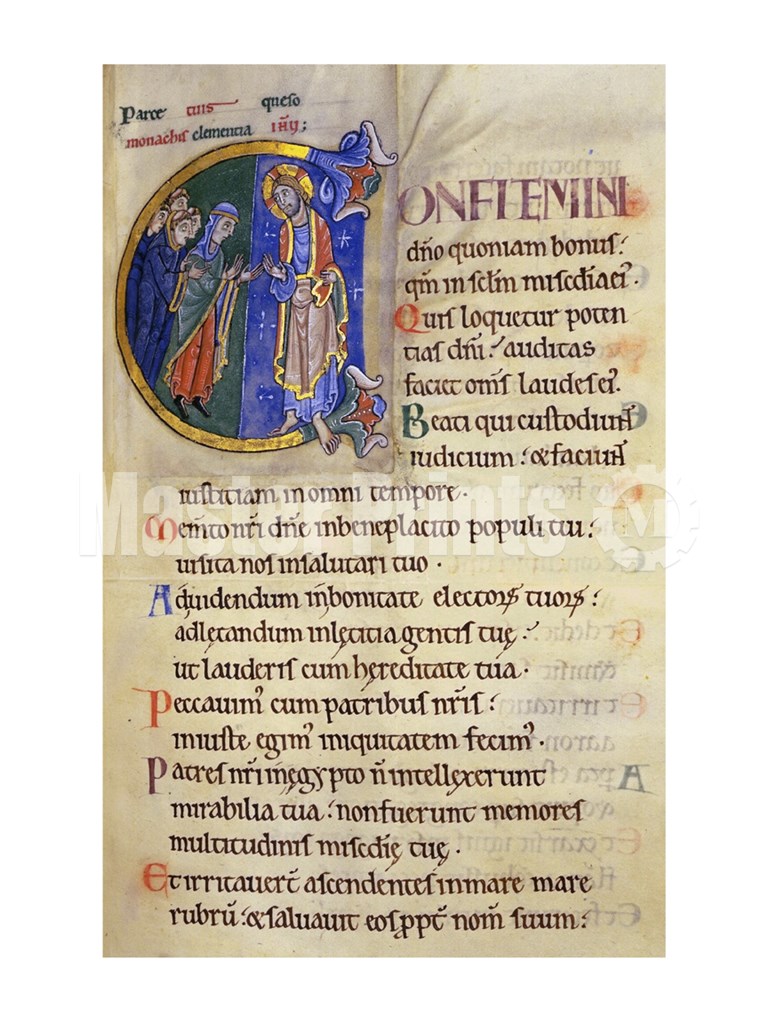 Parce tuis queso
monachis clementia IHU;
CONFITEMINI
dño quoniam bonus:
qm̄ in sclm̄ miscđia ei'.
Quis loquetur poten
tias dñi: auditas
faciet om̄s laudes ei'.
Beati qui custodiunt
iudicium: & faciunt
iustitiam in omni tempore.
Mem̄to nr̄i dñe in beneplacito populi tui:
uisita nos in salutari tuo.
Ad uidendum in bonitate electorꝝ tuorꝝ:
ad lętandum in lętitia gentis tuę:
ut lauderis cum hęreditate tua.
Peccauim' cum patribus nr̄is:
iniuste egim' iniquitatem fecim'.
Patres nr̄i in ęgypto n̄ intellexerunt
mirabilia tua: non fuerunt memores
multitudinis miscđię tuę.
Et irritauer̄t ascendentes in mare mare
rubrū: & saluauit eos ꝓpt̄ nom̄ suum:
Master Prints